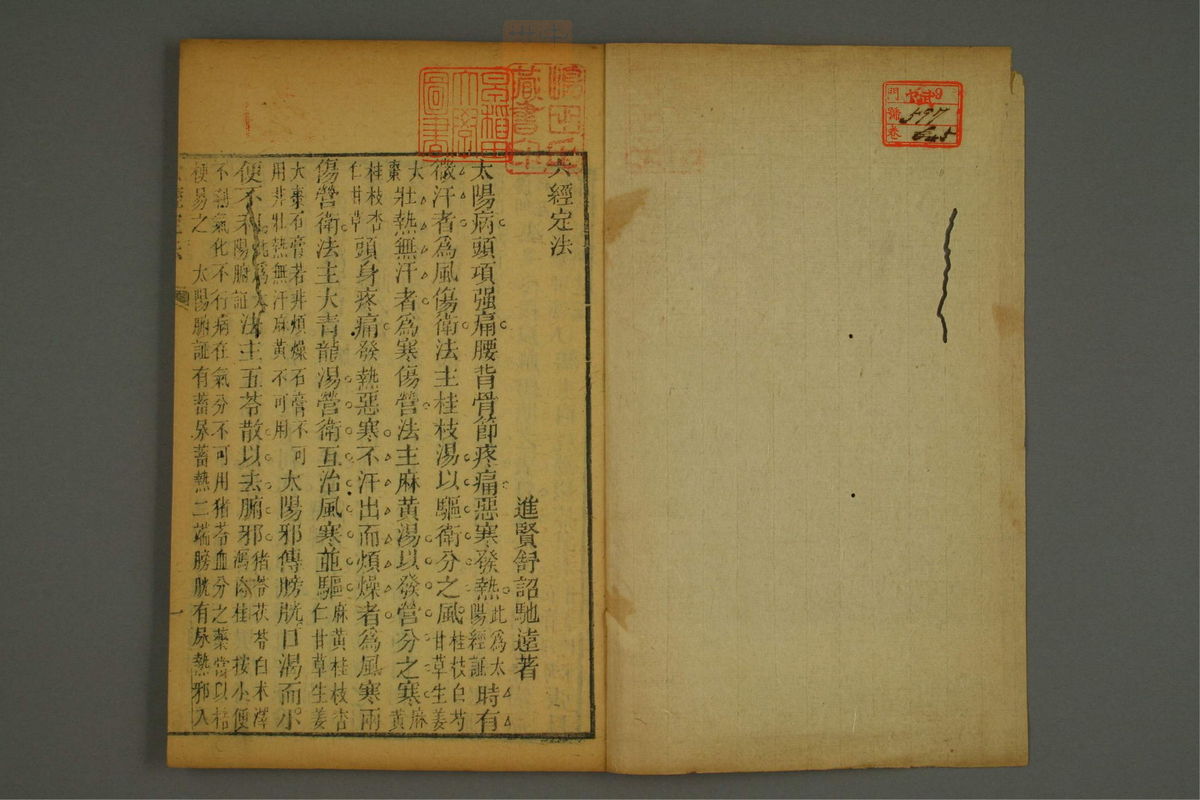 六經定法
進賢舒詔馳遠著
太陽病頭項强痛腰背骨節疼痛惡寒發熱此爲太陽經証時有
微汗者爲風傷衛法主桂枝湯以驅衛分之風桂枝白芍甘草生姜
大棗壯熱無汗者爲寒傷營法主麻黃湯以發營分之寒麻黃
桂枝杏仁甘草頭身疼痛發熱惡寒不汗出而煩燥者爲風寒兩
傷營衛法主大青龍湯營衛互治風寒並驅麻黃桂枝杏仁甘草生姜
大棗石膏若非煩燥石膏不可用非壯熱無汗麻黃不可用太陽邪傳膀胱口渴而小
便不利此爲太陽腑証法主五苓散以去腑邪猪苓茯苓白术澤瀉肉桂按小便
不利氣化不行病在氣分不可用猪苓血分之藥當以桔
梗易之太陽腑証有蓄尿蓄熱二端膀胱有尿熱邪入
一
早稻田大學圖書
藏書印
門
號 597
卷